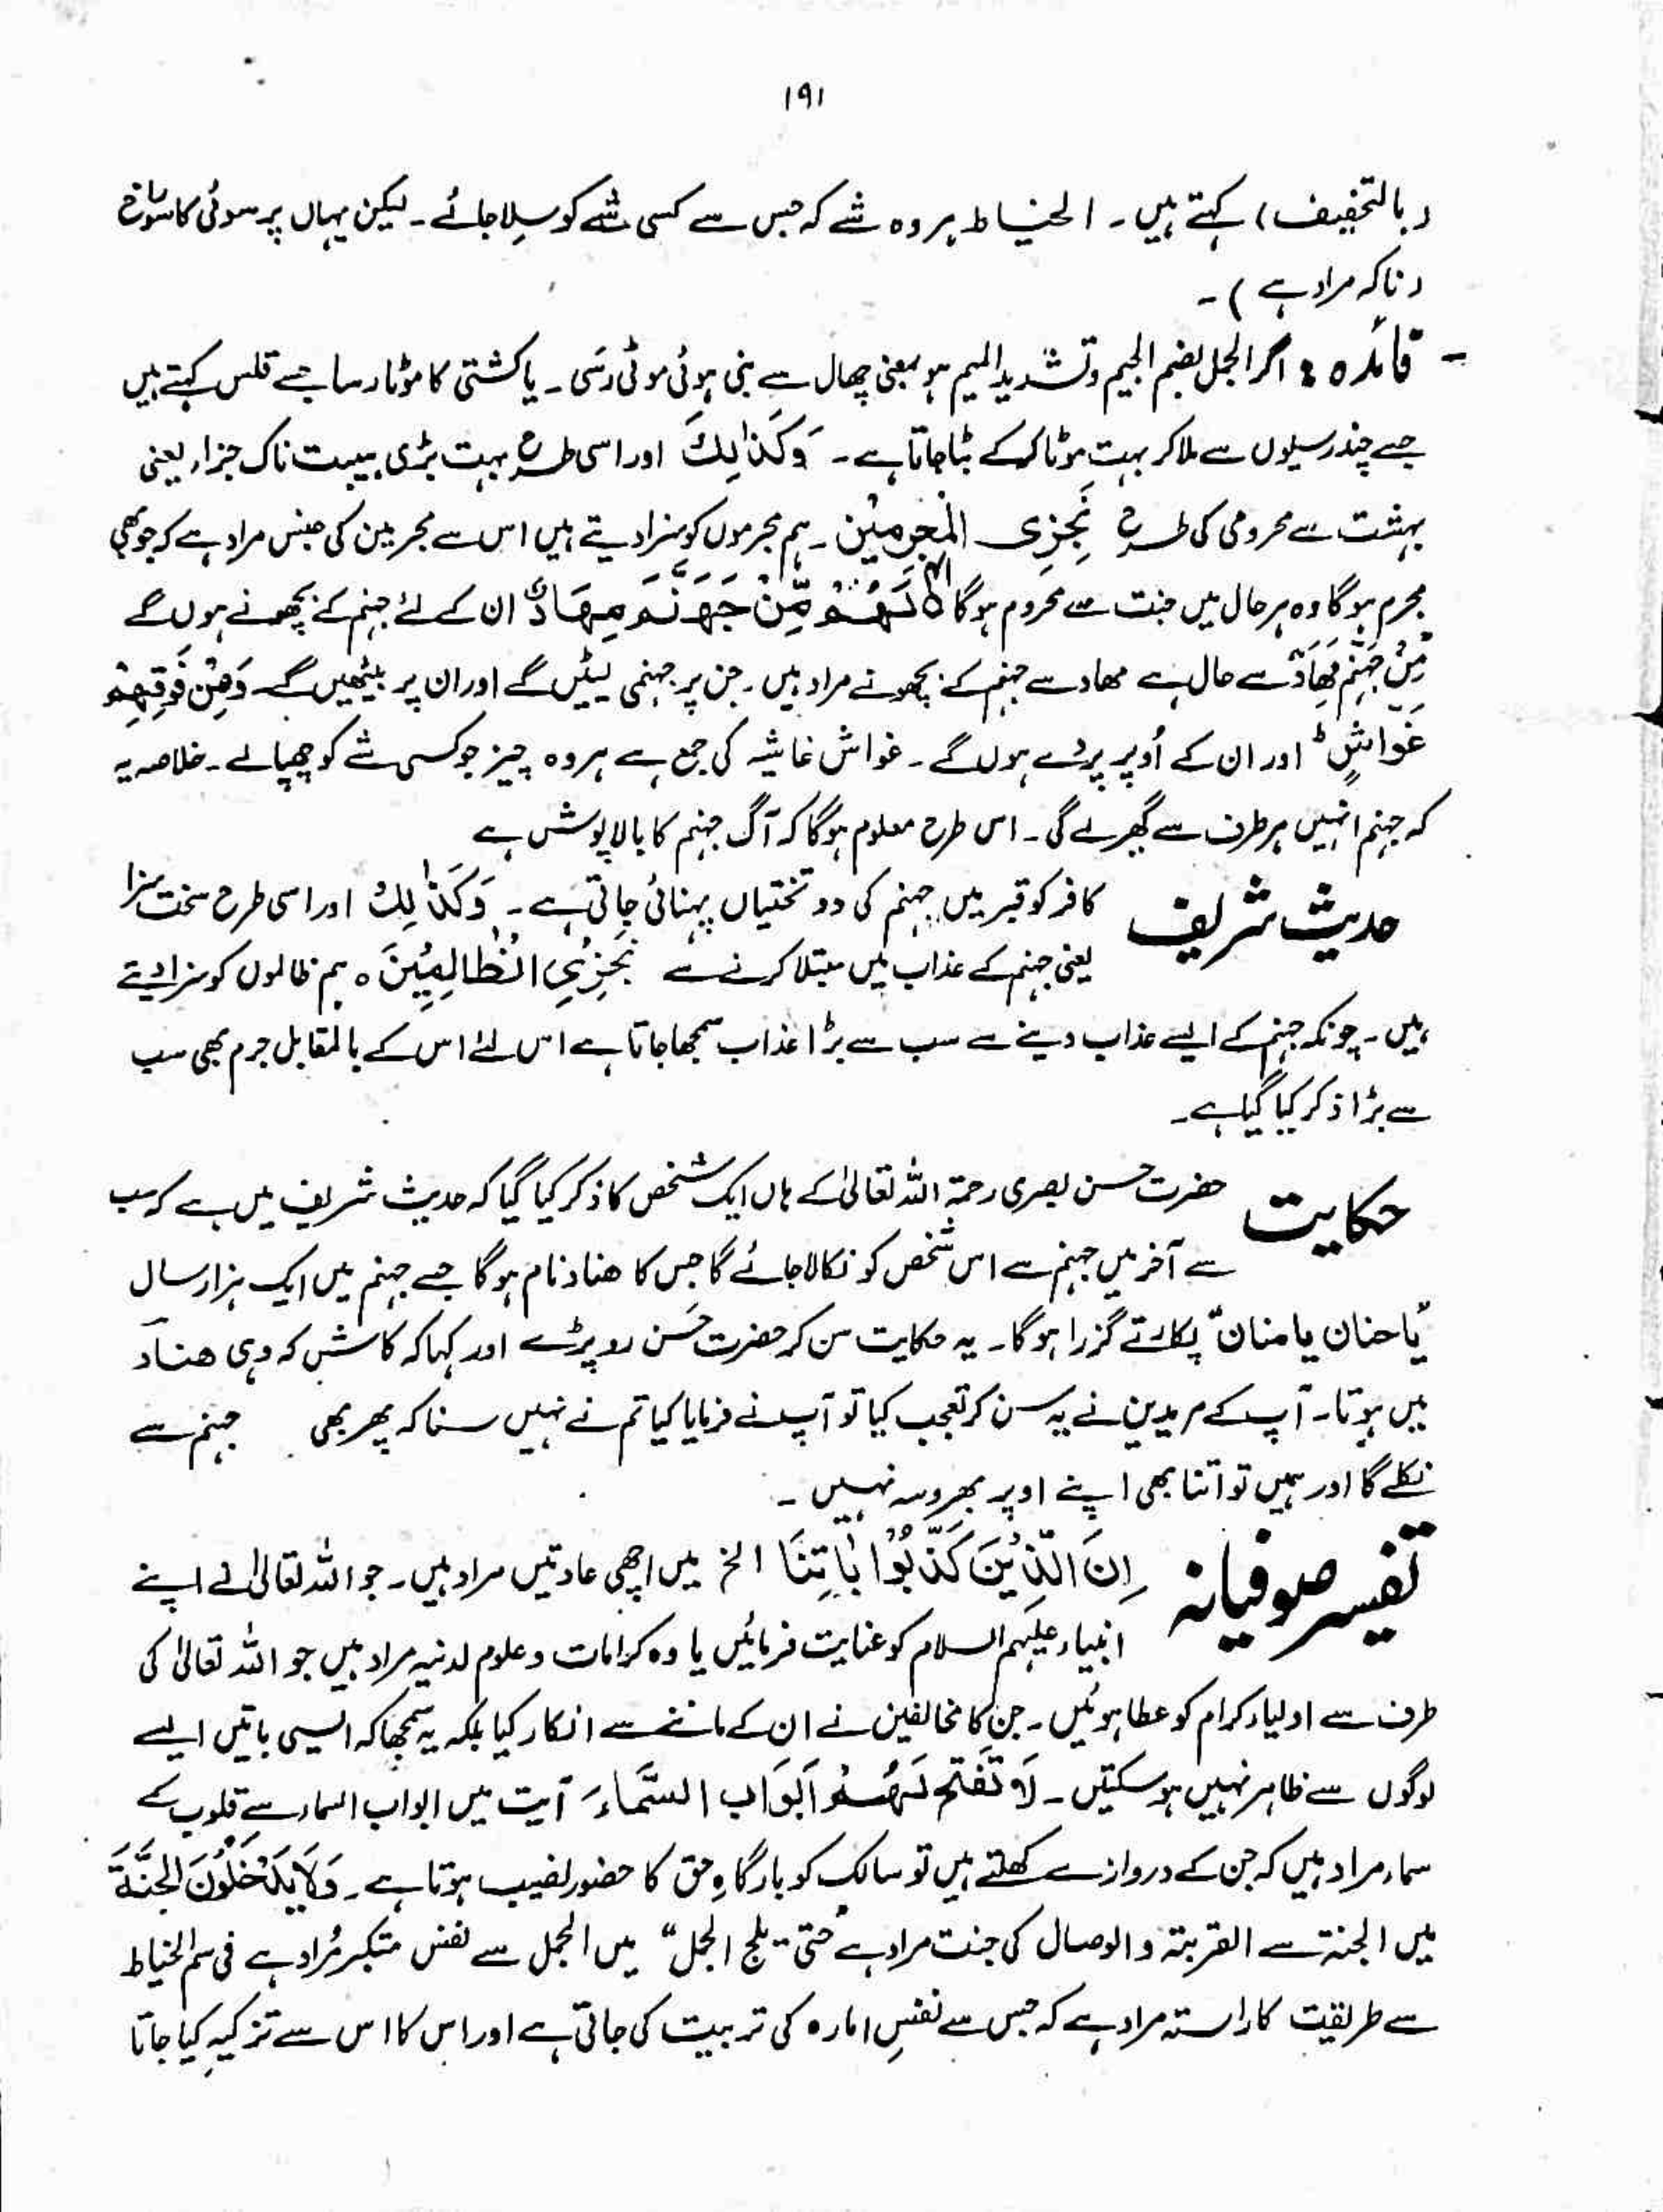 ۱۹۱
(بالتخفیف) کہتے ہیں۔ الخیاط ہر وہ شے کہ جس سے کسی شے کو سیلا جائے۔ لیکن یہاں پر سوئی کا سوراخ
(ناکہ مراد ہے)۔
فائدہ: اگر الجمل بضم الجیم وتشدید المیم ہو بمعنی چھال سے بنی ہوئی موٹی رسی۔ یا کشتی کا موٹا رسا جسے قلس کہتے ہیں
جسے چند رسیوں سے ملا کر بہت موٹا کر کے بٹا جاتا ہے۔ وَكَذٰلِكَ اور اسی طرح بہت بڑی ہیبت ناک جزاء یعنی
بہشت سے محرومی کی طرح نَجْزِی الْمُجْرِمِیْنَ۔ ہم مجرموں کو سزا دیتے ہیں اس سے مجرمین کی جنس مراد ہے کہ جو بھی
مجرم ہوگا وہ ہر حال میں جنت سے محروم ہوگا لَهُمْ مِّنْ جَهَنَّمَ مِهَادٌ ان کے لئے جہنم کے بچھونے ہوں گے
مِنْ جَهَنَّمَ مِهَادٌ سے حال ہے مھاد سے جہنم کے بچھونے مراد ہیں۔ جن پر جہنمی لیٹیں گے اور ان پر بیٹھیں گے۔ وَمِنْ فَوْقِهِمْ
غَوَاشٍ ط اور ان کے اُوپر پردے ہوں گے۔ غواش غاشیہ کی جمع ہے ہر وہ چیز جو کسی شے کو چھپالے۔ خلاصہ یہ
کہ جہنم انہیں ہر طرف سے گھیر لے گی۔ اس طرح معلوم ہوگا کہ آگ جہنم کا بالا پوش ہے
حدیث شریف کافر کو قبر میں جہنم کی دو تختیاں پہنائی جاتی ہے۔ وَكَذٰلِكَ اور اسی طرح سخت سزا
یعنی جہنم کے عذاب میں مبتلا کرنے سے نَجْزِی الظّٰلِمِیْنَ ہ ہم ظالموں کو سزا دیتے
ہیں۔ چونکہ جہنم کے ایسے عذاب دینے سے سب سے بڑا عذاب سمجھا جاتا ہے اس لئے اس کے بالمقابل جرم بھی سب
سے بڑا ذکر کیا گیا ہے۔
حکایت حضرت حسن بصری رحمۃ اللہ تعالیٰ کے ہاں ایک شخص کا ذکر کیا گیا کہ حدیث شریف میں ہے کہ سب
سے آخر میں جہنم سے اس شخص کو نکالا جائے گا جس کا ھناد نام ہوگا جسے جہنم میں ایک ہزار سال
"یا حنان یا منان" پکارتے گزرا ہوگا۔ یہ حکایت سن کر حضرت حسن رو پڑے اور کہا کہ کاش کہ وہی ھناد
میں ہوتا۔ آپ کے مریدین نے یہ سن کر تعجب کیا تو آپ نے فرمایا کیا تم نے نہیں سنا کہ پھر بھی جہنم سے
نکلے گا اور ہمیں تو اتنا بھی اپنے اوپر بھروسہ نہیں۔
تفسیر صوفیانہ اِنَّ الَّذِیْنَ كَذَّبُوْا بِاٰیٰتِنَا الخ میں اچھی عادتیں مراد ہیں۔ جو اللہ تعالیٰ نے اپنے
انبیاء علیہم السلام کو عنایت فرمائیں یا وہ کرامات و علوم لدنیہ مراد ہیں جو اللہ تعالیٰ کی
طرف سے اولیاء کرام کو عطا ہوئیں۔ جن کا مخالفین نے ان کے ماننے سے انکار کیا بلکہ یہ سمجھا کہ ایسی باتیں ایسے
لوگوں سے ظاہر نہیں ہو سکتیں۔ لَا تُفَتَّحُ لَهُمْ اَبْوَاب السَّمَاءَ آیت میں ابواب السماء سے قلوب کے
سماء مراد ہیں کہ جن کے دروازے کھلتے ہیں تو سالک کو بارگاہِ حق کا حضور نصیب ہوتا ہے۔ وَلَا یَدْخُلُوْنَ الْجَنَّةَ
میں الجنۃ سے القربتہ والوصال کی جنت مراد ہے "حتی یلج الجمل" میں الجمل سے نفس متکبر مُراد ہے فی سم الخیاط
سے طریقت کا راستہ مراد ہے کہ جس سے نفسِ امارہ کی تربیت کی جاتی ہے اور اس کا اس سے تزکیہ کیا جاتا